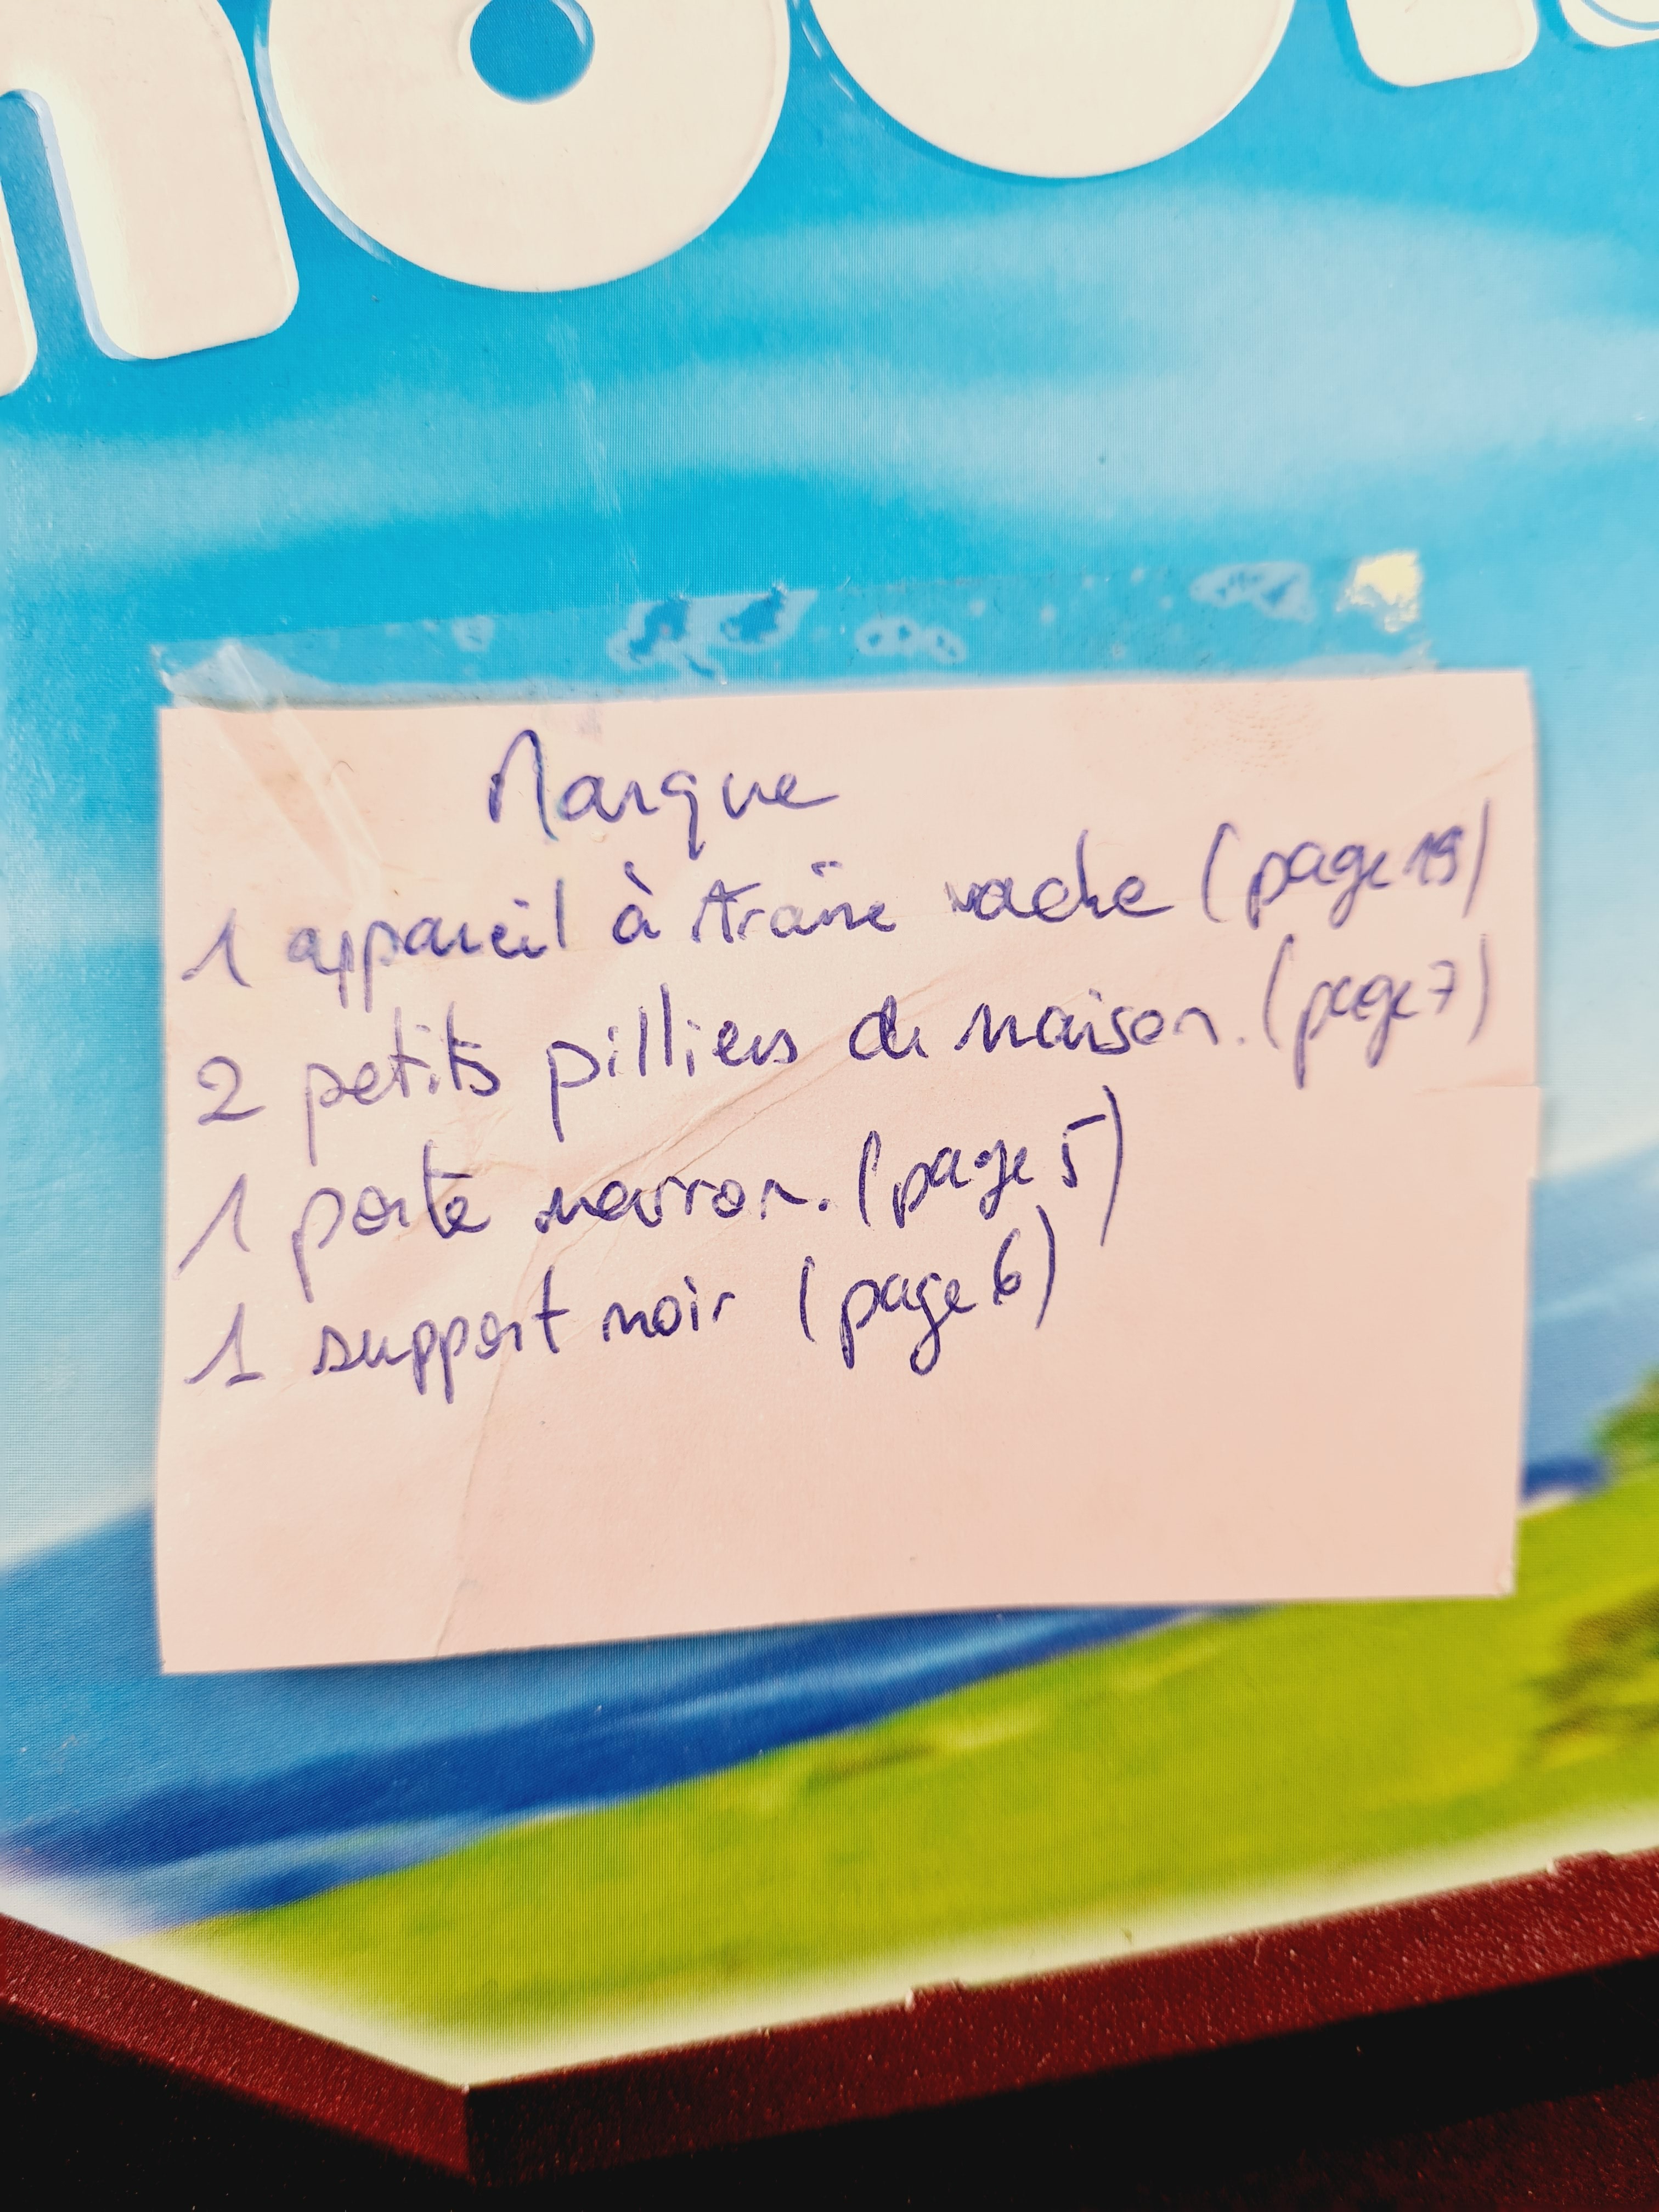 Manque
1 appareil à traïre vache (page 19)
2 petits pilliers de maison. (page 7)
1 porte marron. (page 5)
1 support noir (page 6)